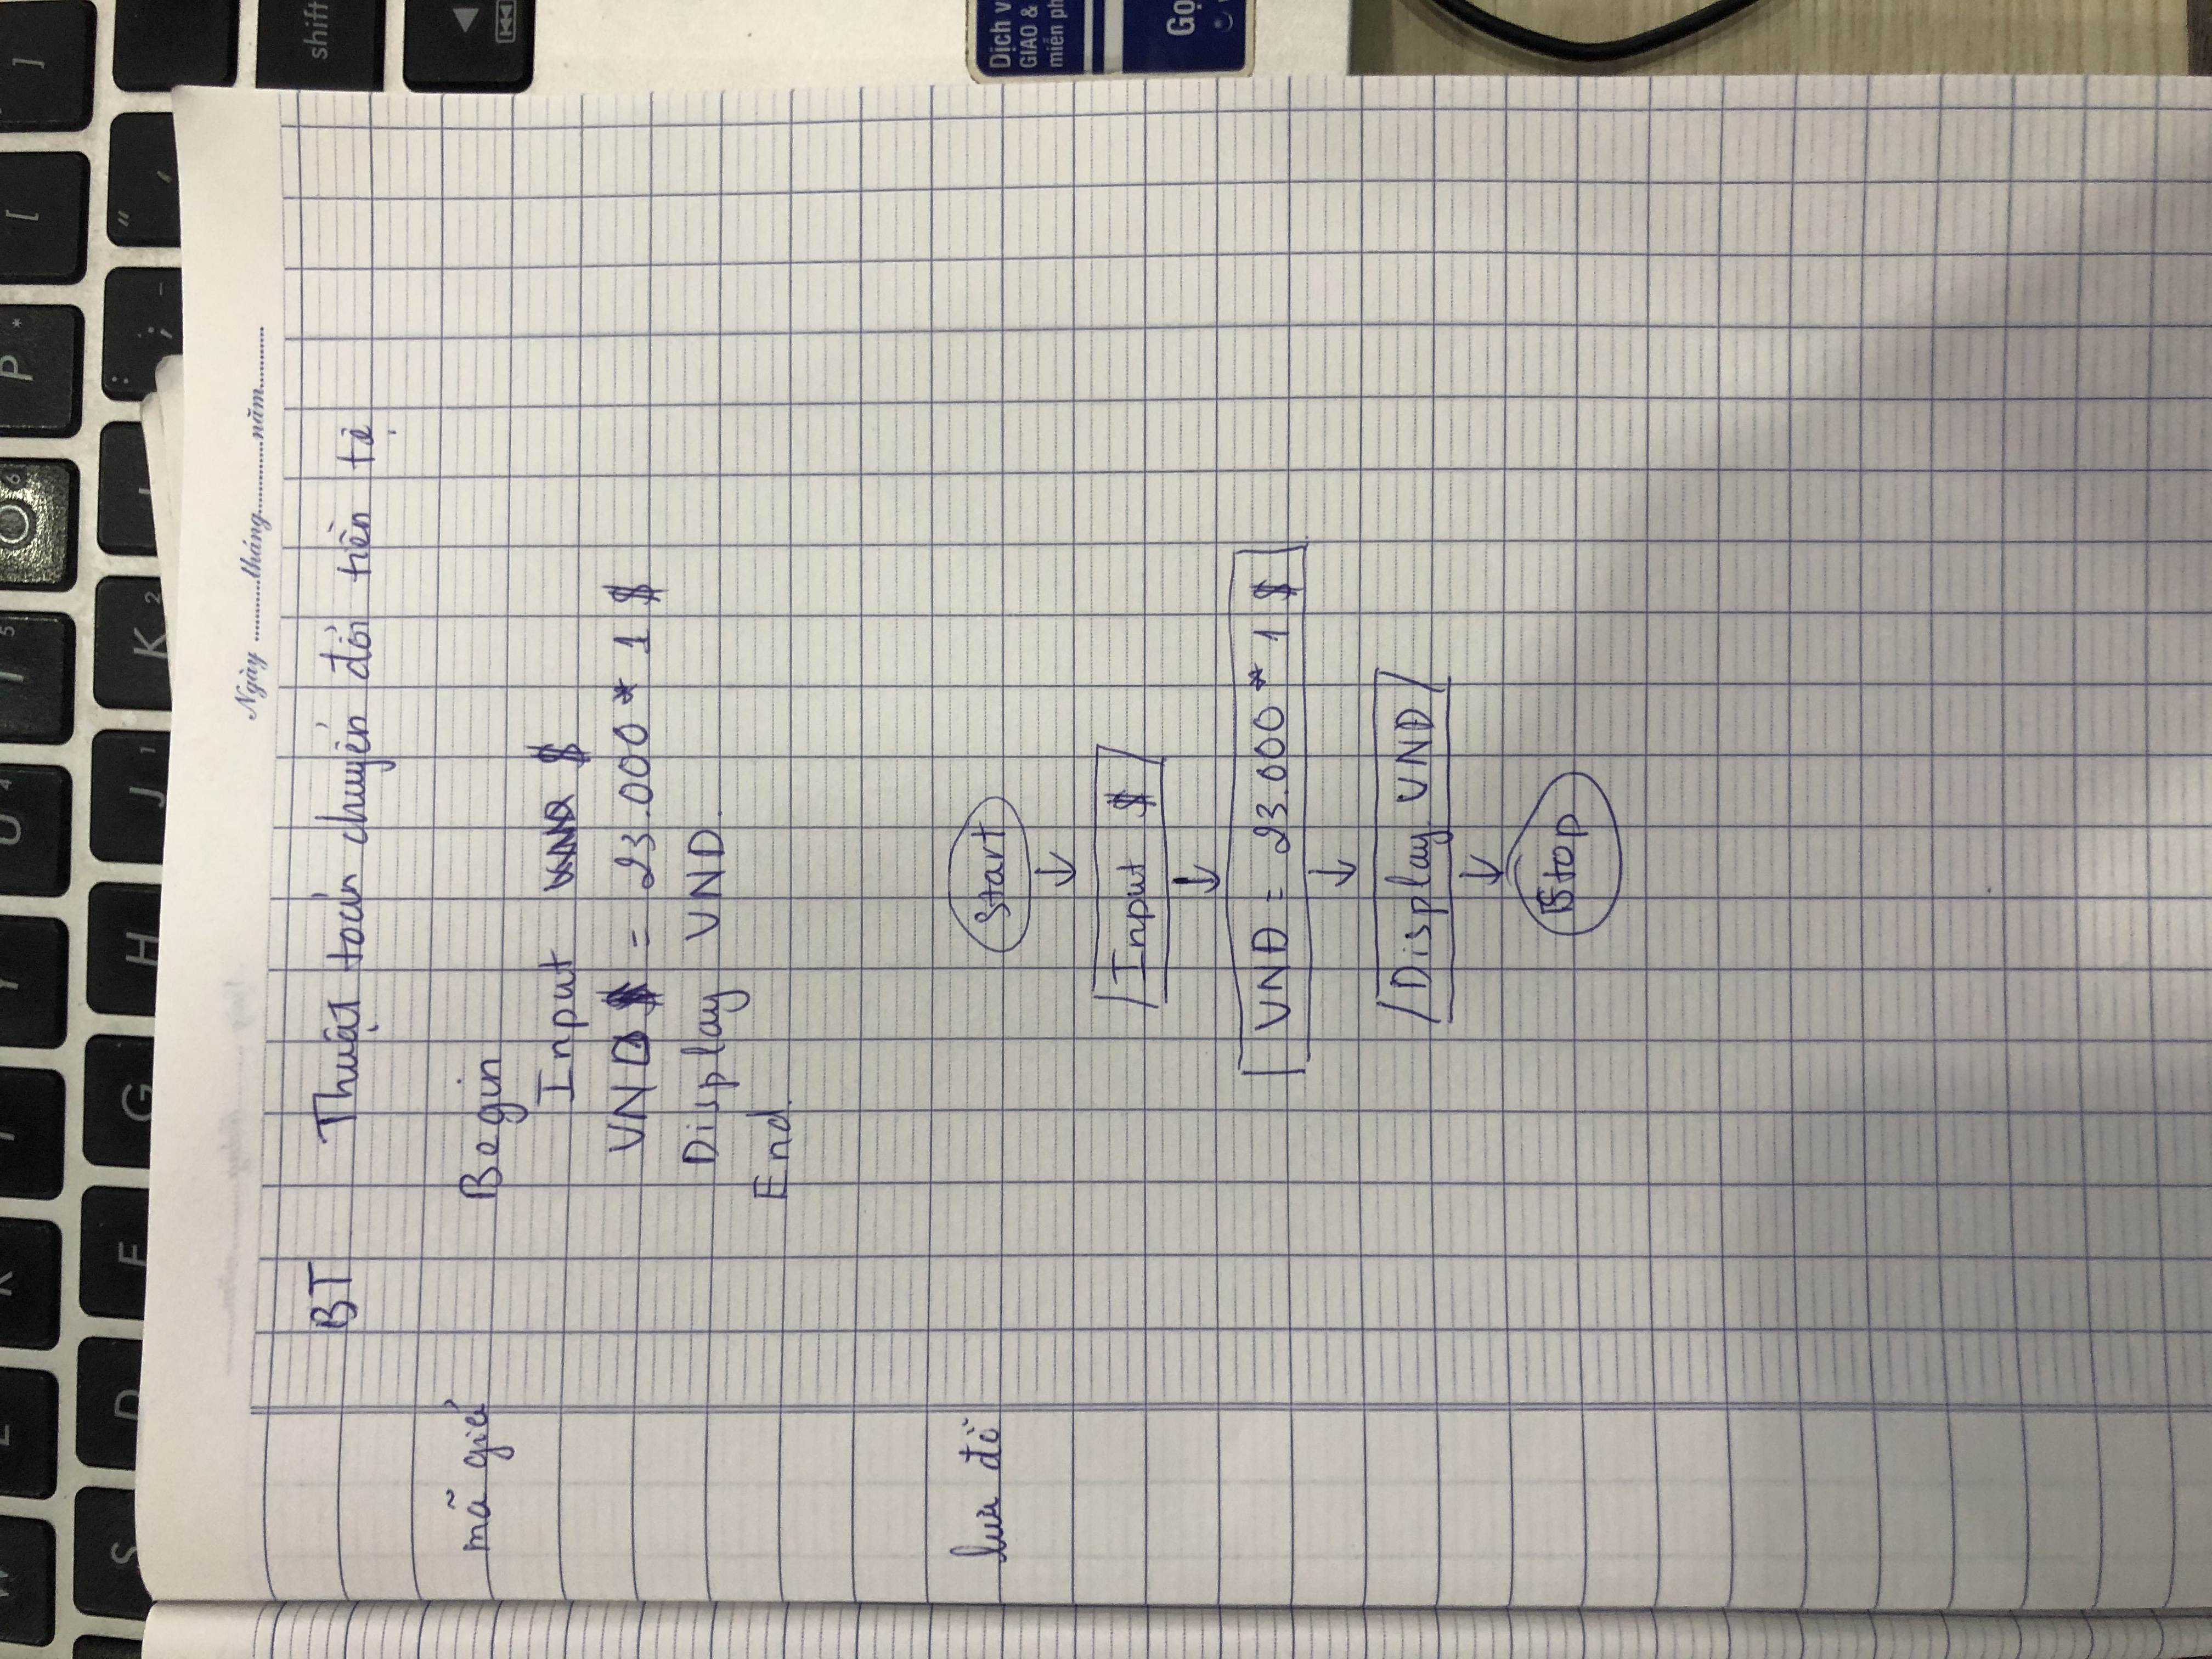 W E R T Y U 4 I 5 O 6 P * [ ]
S D F G H J 1 K 2 L : ; _ " ,
shift
Ngày ...........tháng.............năm...........
BT Thuật toán chuyển đổi tiền tệ
mã giả Begin
Input $
VND = 23.000 * 1 $
Display VND.
End.
lưu đồ Start
Input $
VNĐ = 23.000 * 1 $
Display VNĐ
Stop
Dịch v
GIAO &
miễn ph
Gọ